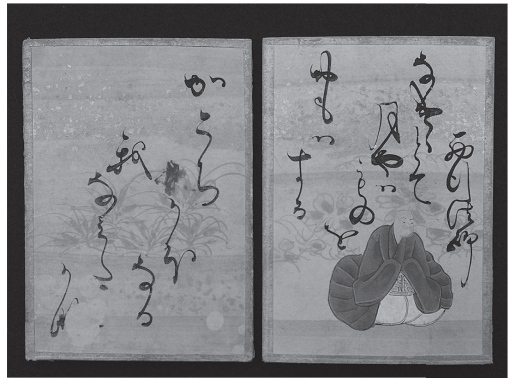 西行法師
なけゝとて
月やは
ものを
おもは
する
かこち
かほ
なる
我
なみた
かな